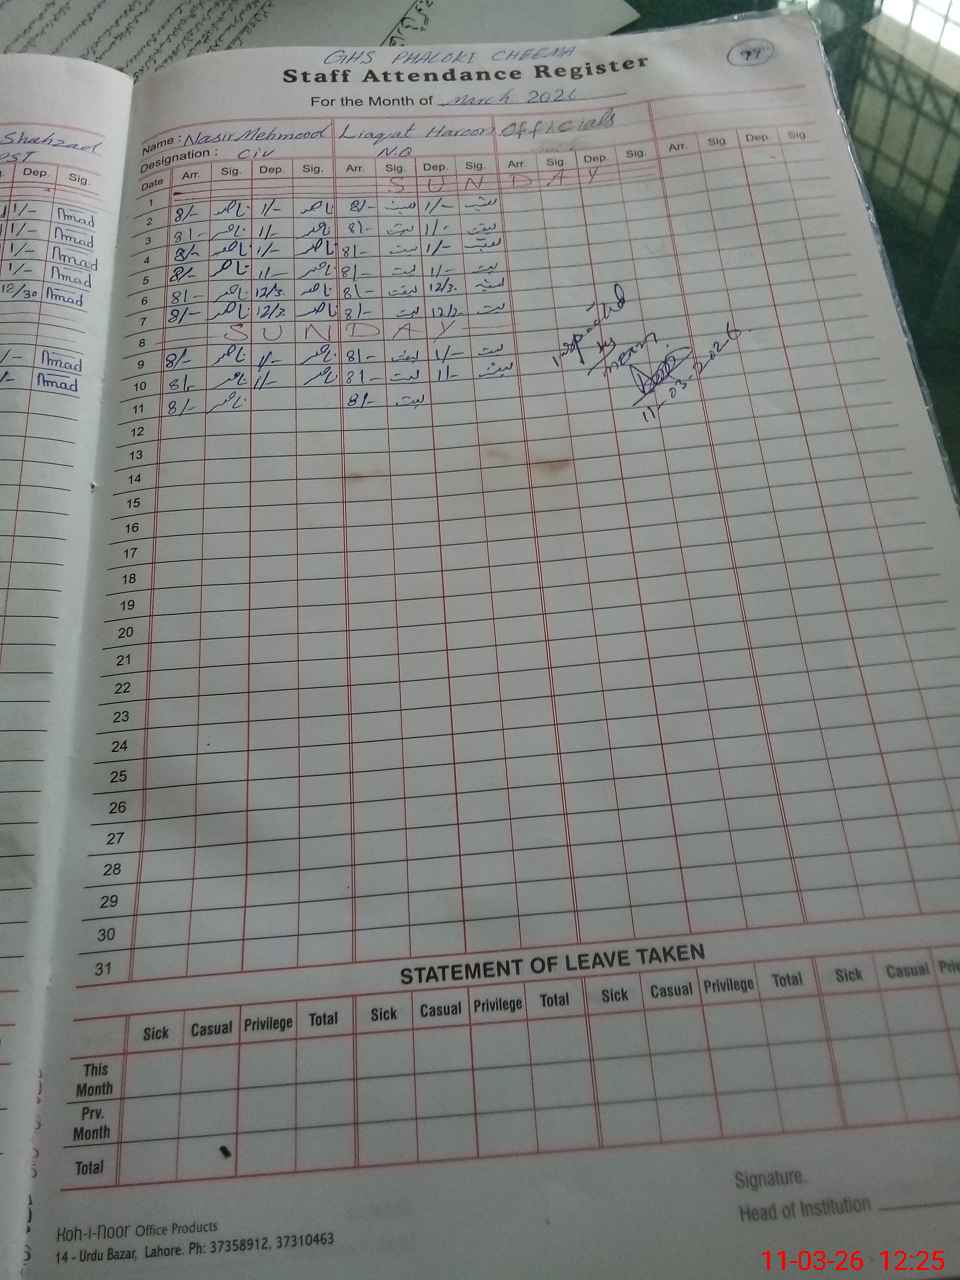 GHS PHALOKI CHEEMA
99
Staff Attendance Register
For the Month of March 2026
Name : Nasir Mehmood Liaqat Haroon Officials
Designation : Civ N.Q
Date Arr. Sig. Dep. Sig. Arr. Sig. Dep. Sig. Arr. Sig Dep. Sig. Arr. Sig Dep. Sig.
1 S U N D A Y
2 8/- ناصر 1/- ناصر 8/- 1/-
3 8/- ناصر 1/- ناصر 8/- 1/-
4 8/- ناصر 1/- ناصر 8/- 1/-
5 8/- ناصر 1/- ناصر 8/- 1/-
6 8/- ناصر 12/30 ناصر 8/- 12/30
7 8/- ناصر 12/30 ناصر 8/- 12/30
8 S U N D A Y
9 8/- ناصر 1/- ناصر 8/- 1/-
10 8/- ناصر 1/- ناصر 8/- 1/-
11 8/- ناصر 8/-
12
13
14
15
16
17
18
19
20
21
22
23
24
25
26
27
28
29
30
31
Inspected
by
11-03-2026
STATEMENT OF LEAVE TAKEN
Sick Casual Privilege Total Sick Casual Privilege Total Sick Casual Privilege Total Sick Casual
This Month
Prv. Month
Total
Signature.
Head of Institution
Koh-i-noor Office Products
14 - Urdu Bazar, Lahore. Ph: 37358912, 37310463
Shahzad
Dep. Sig.
1/- Amad
1/- Amad
1/- Amad
1/- Amad
12/30 Amad
Amad
Amad
11-03-26 12:25